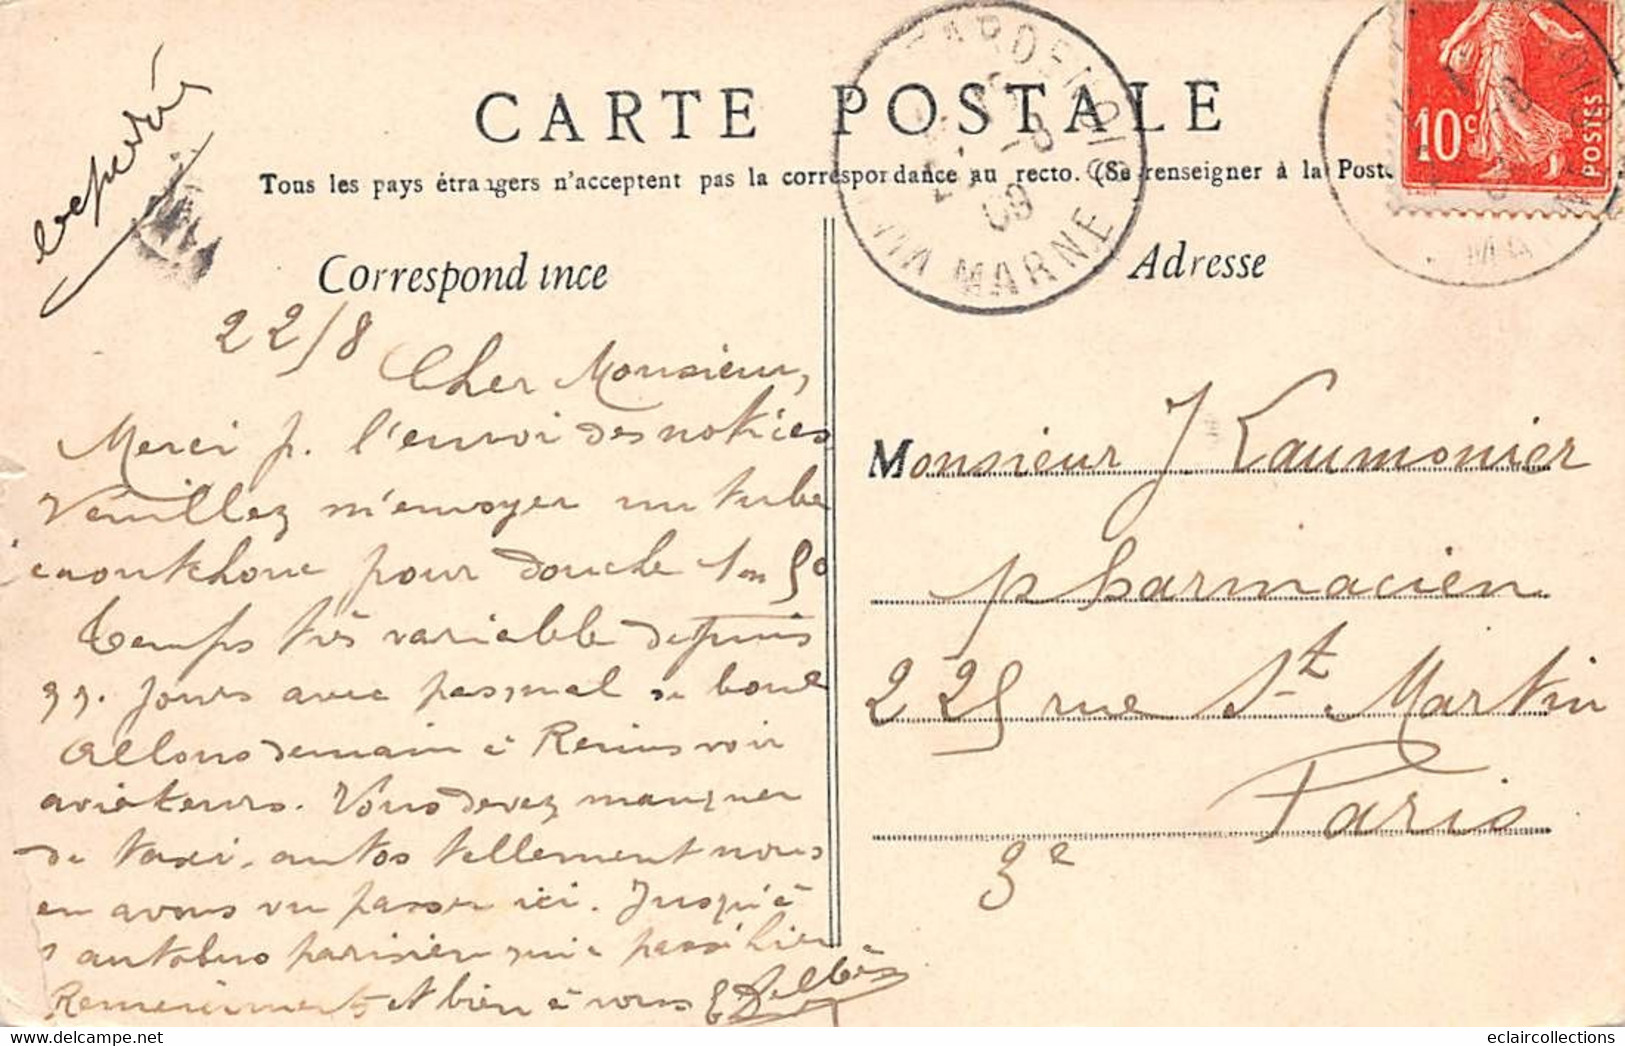 CARTE POSTALE
Tous les pays étrangers n'acceptent pas la correspondance au recto. (Se renseigner à la Poste
Correspondance
Adresse
MARNE
09
10c
POSTES
22/8
Cher Monsieur,
Merci p. l'envoi des notices
Veuillez m'envoyer un tube
caoutchouc pour douche 1m50
Temps très variable depuis
jours avec pas mal de boue
Allons demain à Reims voir
aviateurs. Vous devez manquer
de taxi-autos tellement nous
en avons vu passer ici. Jusqu'à
1 autobus parisien qui a passé hier
Remerciements et bien à vous
Monsieur J Laumonier
pharmacien
225 rue St Martin
Paris
3e
eclaircollections